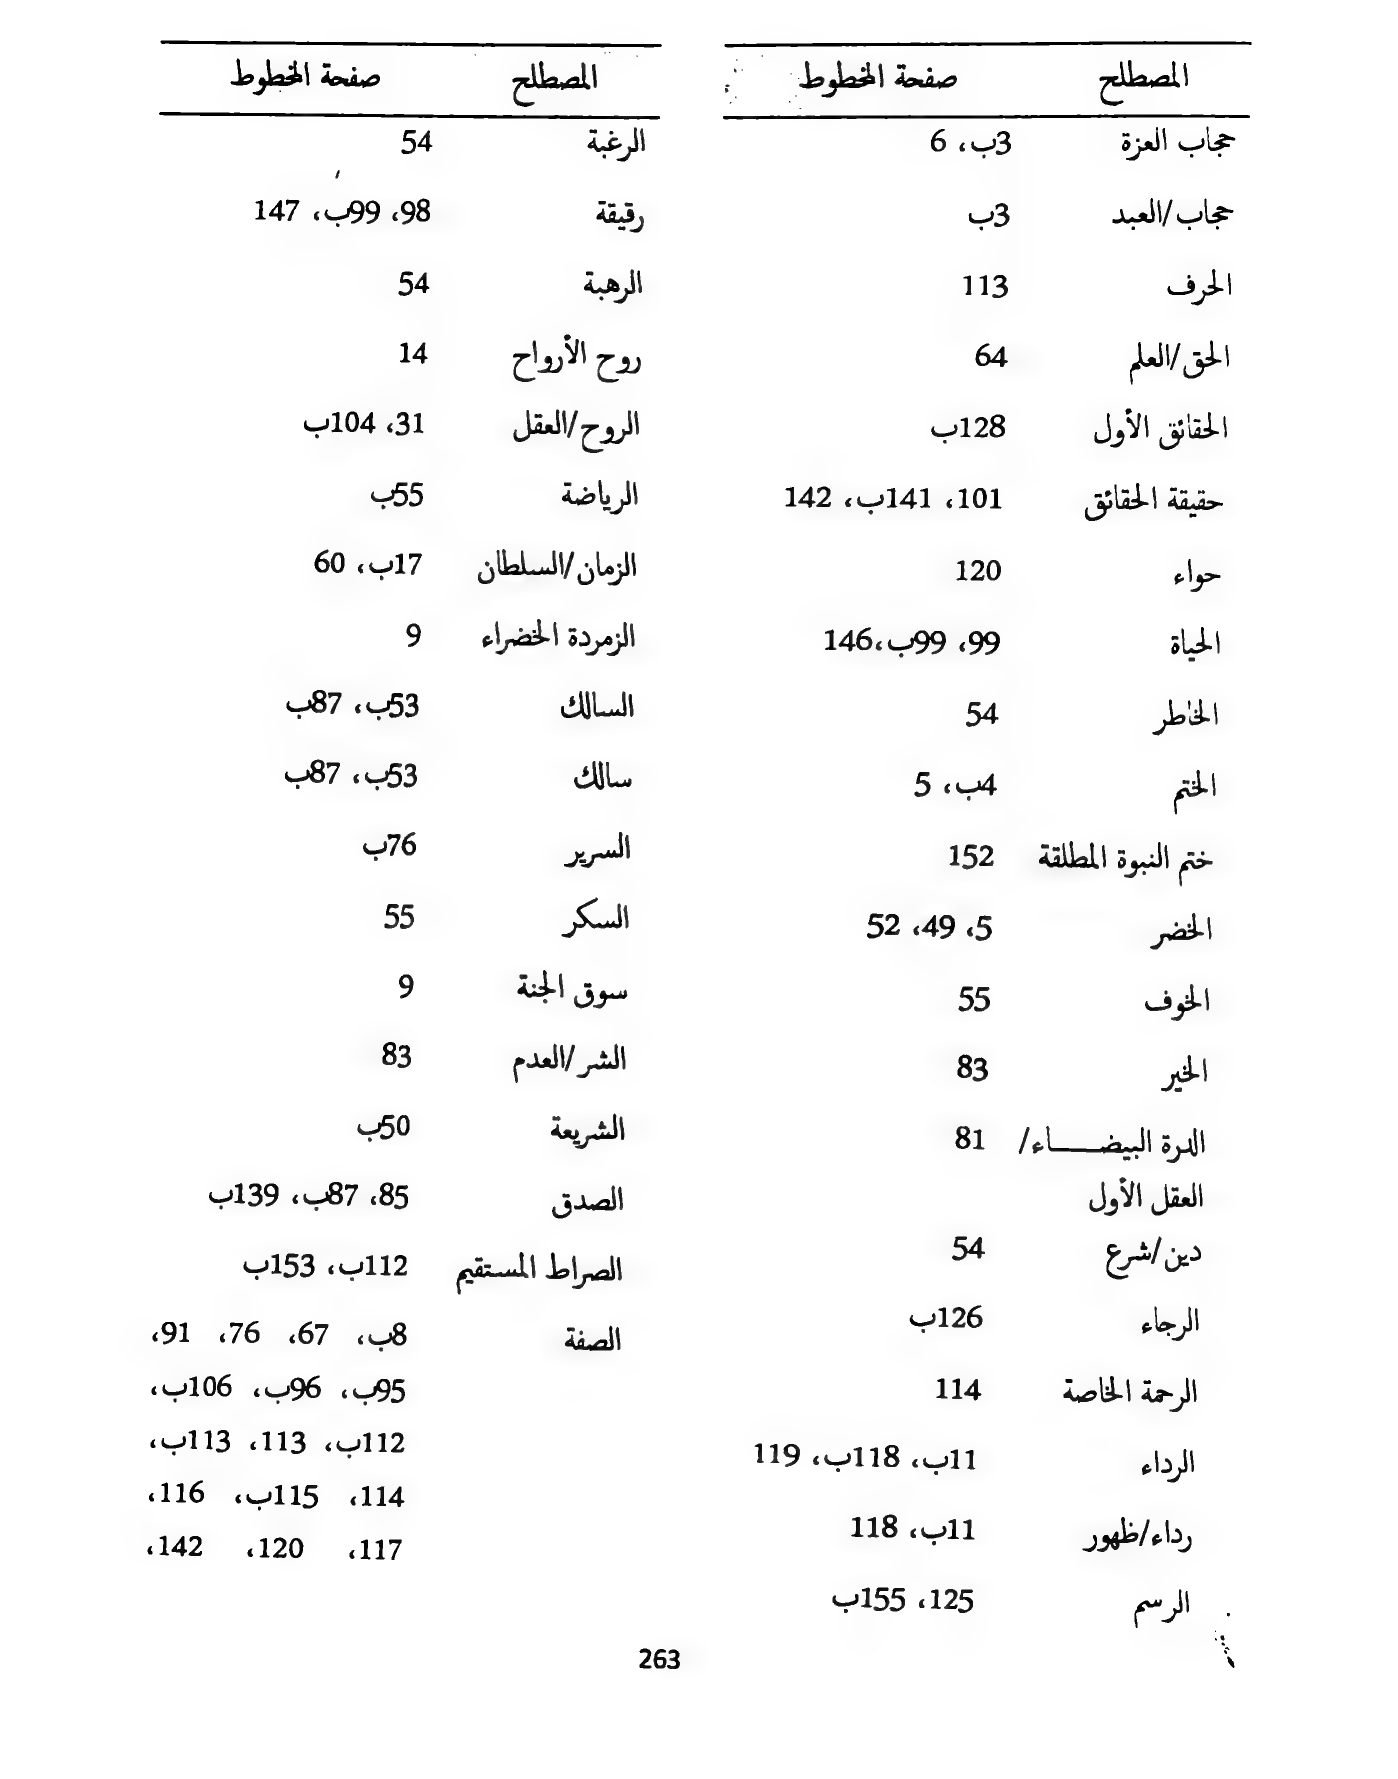 المصطلح صفحة المخطوط
حجاب العزة 3ب، 6
حجاب/العبد 3ب
الحرف 113
الحق/العلم 64
الحقائق الأول 128ب
حقيقة الحقائق 101، 141ب، 142
حواء 120
الحياة 99، 99ب،146
الخاطر 54
الختم 4ب، 5
ختم النبوة المطلقة 152
الخضر 5، 49، 52
الخوف 55
الخير 83
الدرة البيضـــــاء/ 81
العقل الأول
دين/شرع 54
الرجاء 126ب
الرحمة الخاصة 114
الرداء 11ب، 118ب، 119
رداء/ظهور 11ب، 118
الرسم 125، 155ب
المصطلح صفحة المخطوط
الرغبة 54
رقيقة 98، 99ب، 147
الرهبة 54
روح الأرواح 14
الروح/العقل 31، 104ب
الرياضة 55ب
الزمان/السلطان 17ب، 60
الزمردة الخضراء 9
السالك 53ب، 87ب
سالك 53ب، 87ب
السرير 76ب
السكر 55
سوق الجنة 9
الشر/العدم 83
الشريعة 50ب
الصدق 85، 87ب، 139ب
الصراط المستقيم 112ب، 153ب
الصفة 8ب، 67، 76، 91،
95ب، 96ب، 106ب،
112ب، 113، 113ب،
114، 115ب، 116،
117، 120، 142،
263